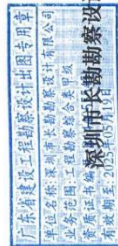 广东省建设工程勘察设计出图专用章
单位名称:深圳市长勘勘察设计有限公司
业务范围:工程勘察综合类甲级
资质证书编
有效期至:2025年05月19日
深圳市长勘勘察设